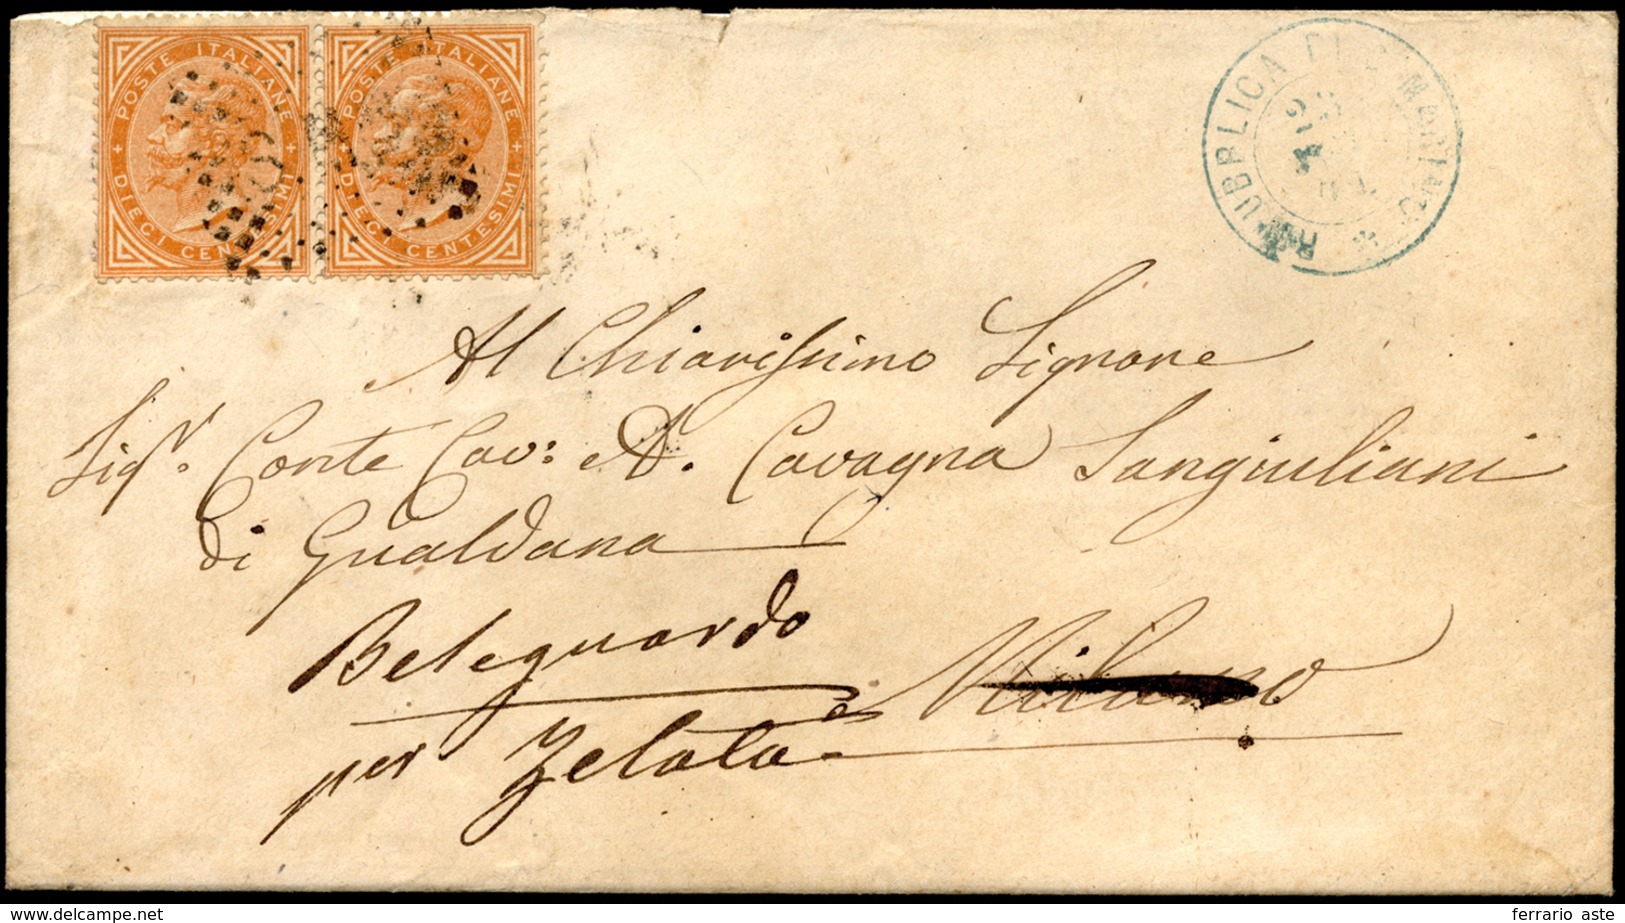 POSTE ITALIANE
DIECI CENTESIMI
POSTE ITALIANE
DIECI CENTESIMI
REPUBBLICA DI S. MARINO
Al Chiarissimo Signore
Sigr. Conte Cav: A. Cavagna Sangiuliani
di Gualdana
Milano
Bereguardo
per Zelata
www.delcampe.net
ferrario aste